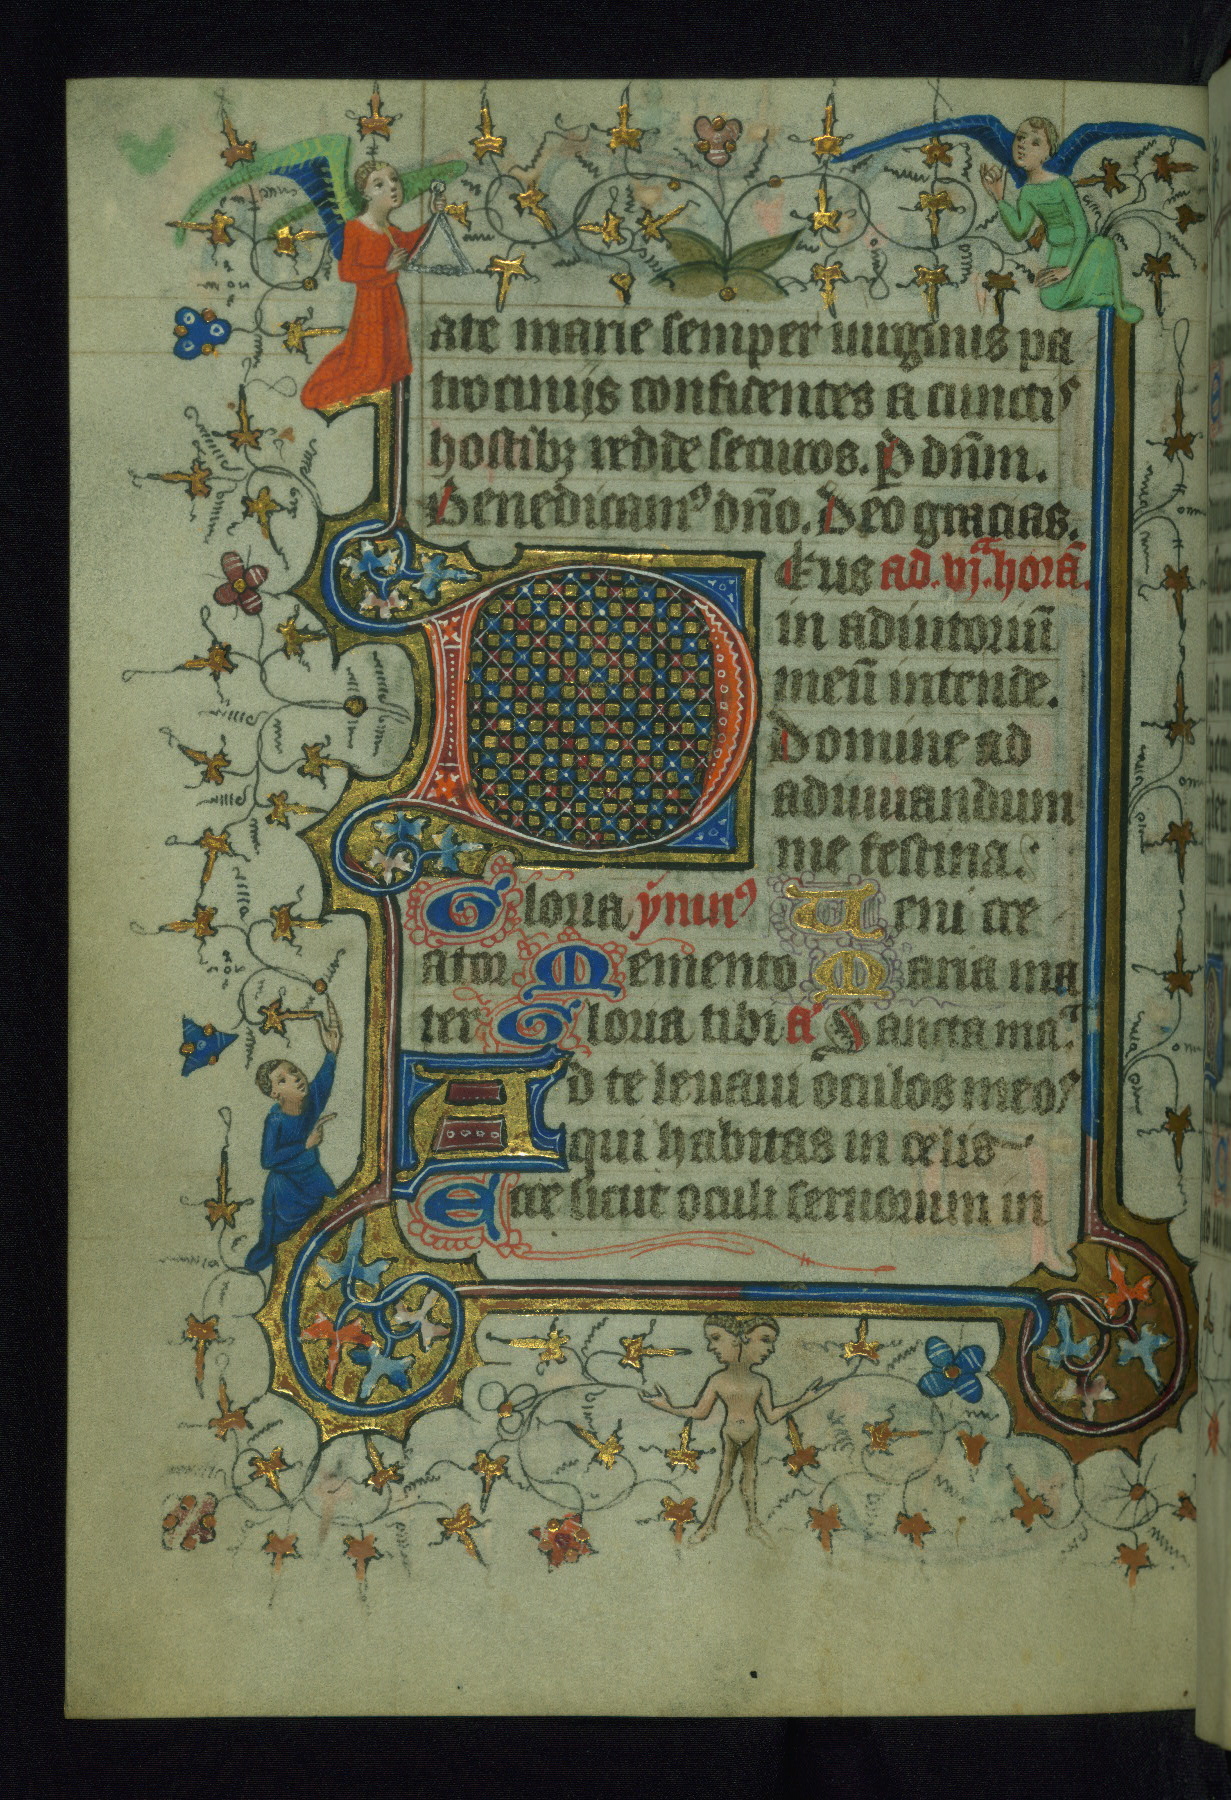 ate marie semper uirginis pa
trociniis confidentes a cunctis
hostibꝫ redde securos. p̲ dn̄m.
Benedicamꝰ dn̄o. Deo gracias.
Eus ad. vj.ᵃ horā.
in adiutoriū
meū intende.
Domine ad
adiuuandum
me festina.
Gloria ẏmnꝰ Ueni cre
ator Memento Maria ma
ter Gloria tibi a͛ Sancta ma.
Ad te leuaui oculos meos
qui habitas in celis
Ecce sicut oculi seruorum in